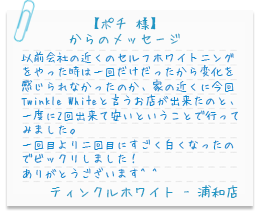 【ポチ 様】
からのメッセージ
以前会社の近くのセルフホワイトニング
をやった時は一回だけだったから変化を
感じられなかったのか、家の近くに今回
Twinkle Whiteと言うお店が出来たのと、
一度に2回出来て安いということで行って
みました。
一回目より二回目にすごく白くなったの
でビックリしました!
ありがとうございます^ ^
ティンクルホワイト - 浦和店